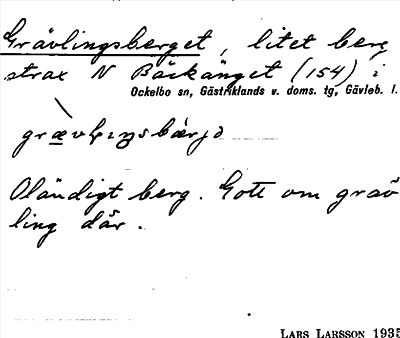 Grävlingsberget, litet berg
strax N Bäckänget (154) i
Ockelbo sn, Gästriklands v. doms. tg, Gävleb. l.
Oländigt berg. Gott om gräv
ling där.
LARS LARSSON 1935